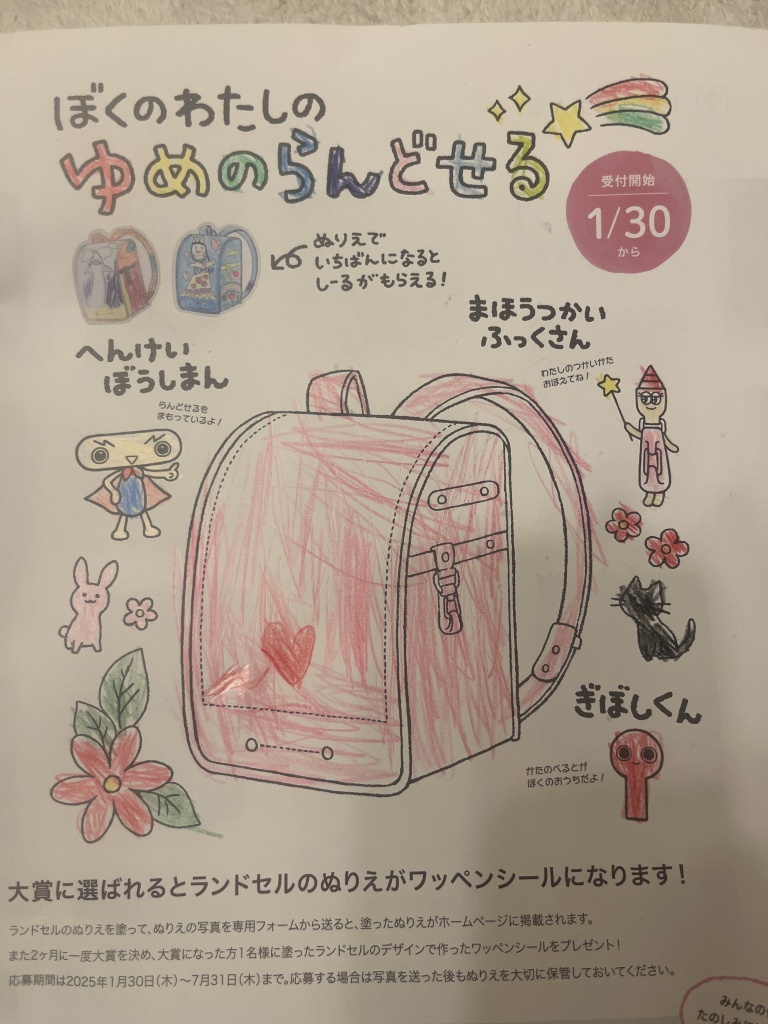 ぼくのわたしの
ゆめのらんどせる
受付開始
1/30
から
ぬりえで
いちばんになると
しーるがもらえる!
まほうつかい
ふっくさん
わたしのつかいかた
おぼえてね!
へんけい
ぼうしまん
らんどせるを
まもっているよ!
ぎぼしくん
かたのべるとが
ぼくのおうちだよ!
大賞に選ばれるとランドセルのぬりえがワッペンシールになります!
ランドセルのぬりえを塗って、ぬりえの写真を専用フォームから送ると、塗ったぬりえがホームページに掲載されます。
また2ヶ月に一度大賞を決め、大賞になった方1名様に塗ったランドセルのデザインで作ったワッペンシールをプレゼント!
応募期間は2025年1月30日(木)〜7月31日(木)まで。応募する場合は写真を送った後もぬりえを大切に保管しておいてください。
みんなの